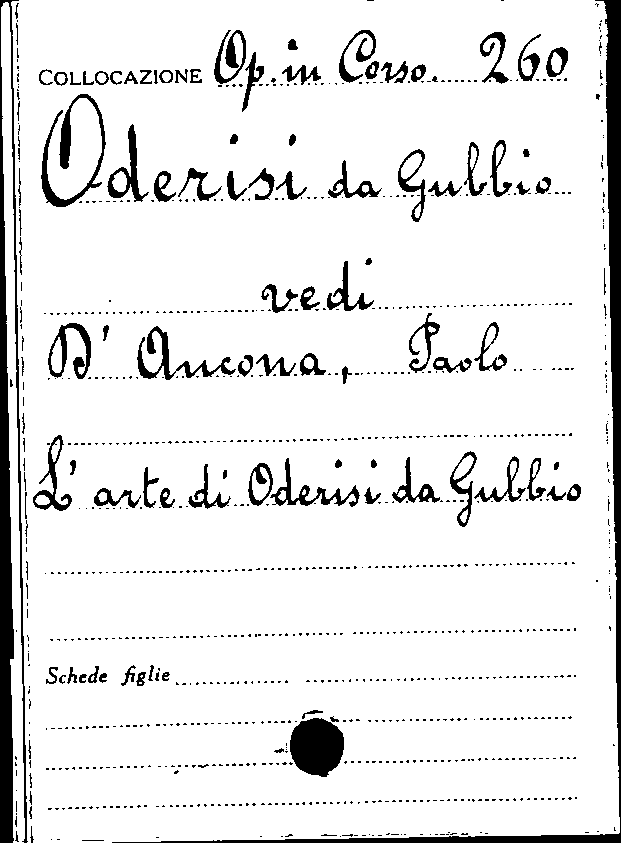 COLLOCAZIONE Op. in Corso. 260
Oderisi da Gubbio
vedi
D' Ancona, Paolo
L' arte di Oderisi da Gubbio
Schede figlie